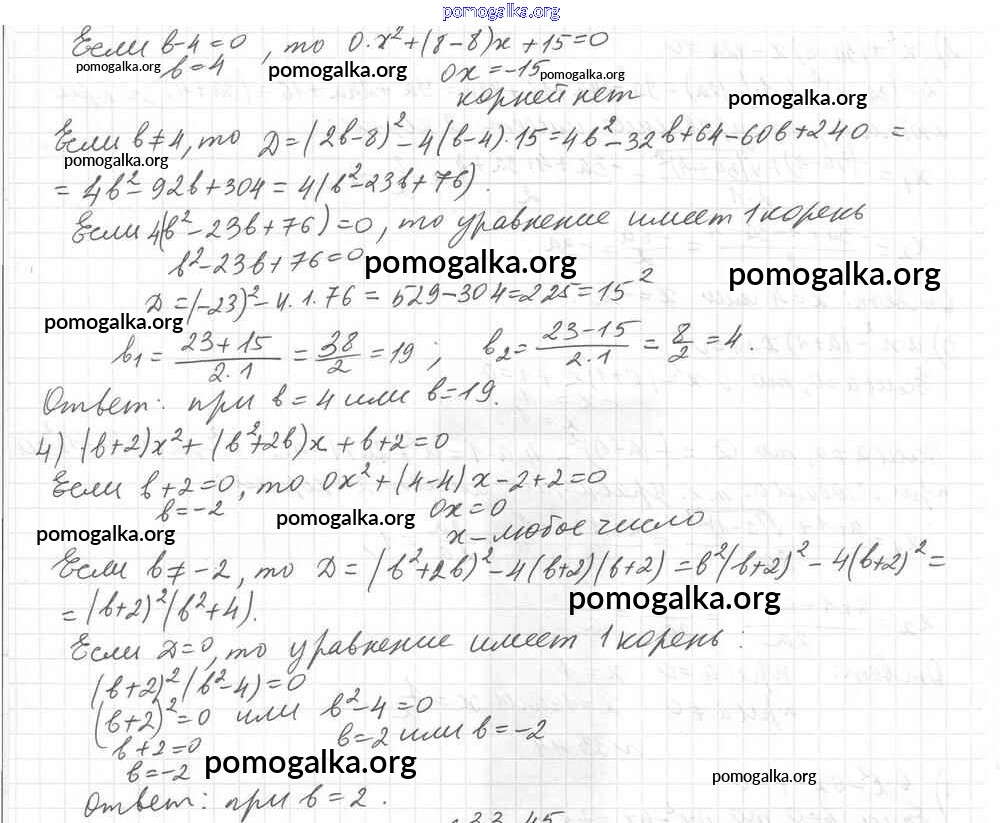 pomogalka.org
Если b-4=0, то 0·x²+(8-8)x+15=0
pomogalka.org b=4 pomogalka.org 0x=-15 pomogalka.org
корней нет pomogalka.org
Если b≠4, то D=(2b-8)²-4(b-4)·15=4b²-32b+64-60b+240=
pomogalka.org
=4b²-92b+304=4(b²-23b+76).
Если 4(b²-23b+76)=0, то уравнение имеет 1 корень
b²-23b+76=0 pomogalka.org pomogalka.org
D=(-23)²-4·1·76=529-304=225=15²
pomogalka.org
b₁=(23+15)/(2·1)=38/2=19; b₂=(23-15)/(2·1)=8/2=4.
Ответ: при b=4 или b=19.
4) (b+2)x²+(b²+2b)x+b+2=0
Если b+2=0, то 0x²+(4-4)x-2+2=0
b=-2 pomogalka.org 0x=0
pomogalka.org x-любое число
Если b≠-2, то D=(b²+2b)²-4(b+2)(b+2)=b²(b+2)²-4(b+2)²=
pomogalka.org
=(b+2)²(b²+4).
Если D=0, то уравнение имеет 1 корень:
(b+2)²(b²-4)=0
(b+2)²=0 или b²-4=0
b+2=0 b=2 или b=-2
b=-2 pomogalka.org pomogalka.org
Ответ: при b=2.